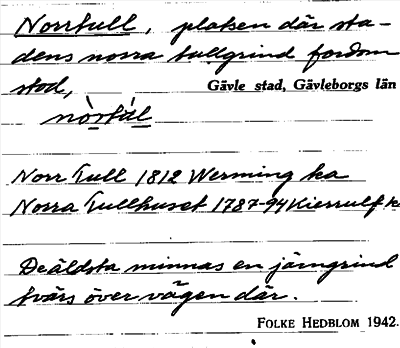 Norrtull, platsen där sta-
dens norra tullgrind fordom
stod,
Gävle stad, Gävleborgs län
nòrtúl
Norr Tull 1812 Werming ka
Norra Tullhuset 1787-94 Kierrulf k
De äldsta minnas en järngrind
tvärs över vägen där.
FOLKE HEDBLOM 1942.